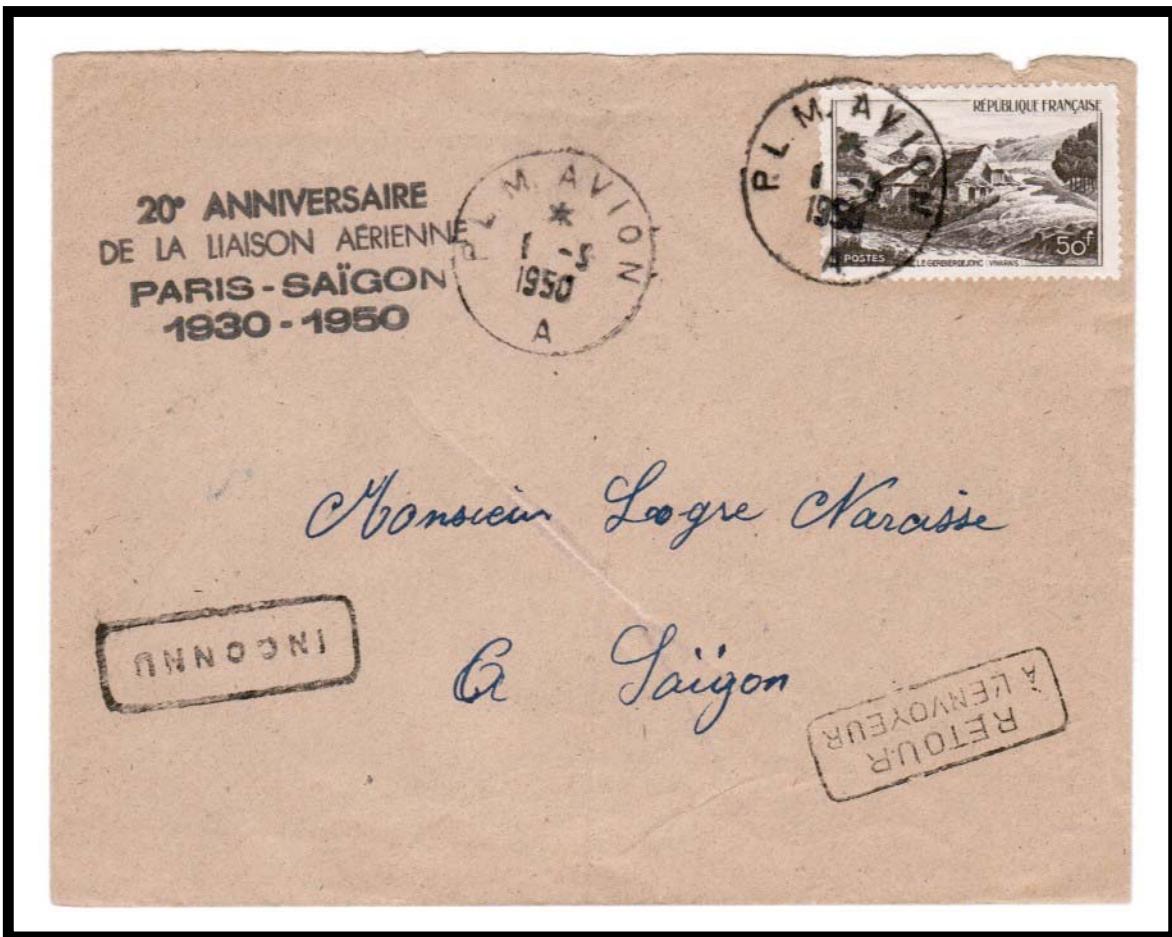 20° ANNIVERSAIRE
DE LA LIAISON AÉRIENNE
PARIS - SAÏGON
1930 - 1950
P. L. M. AVION
1 -5
1950
A
P. L. M. AVION
1 -5
1950
A
RÉPUBLIQUE FRANÇAISE
50f
POSTES LE GERBIER DE JONC (VIVARAIS)
Monsieur Logre Narcisse
A Saïgon
INCONNU
RETOUR
À L'ENVOYEUR